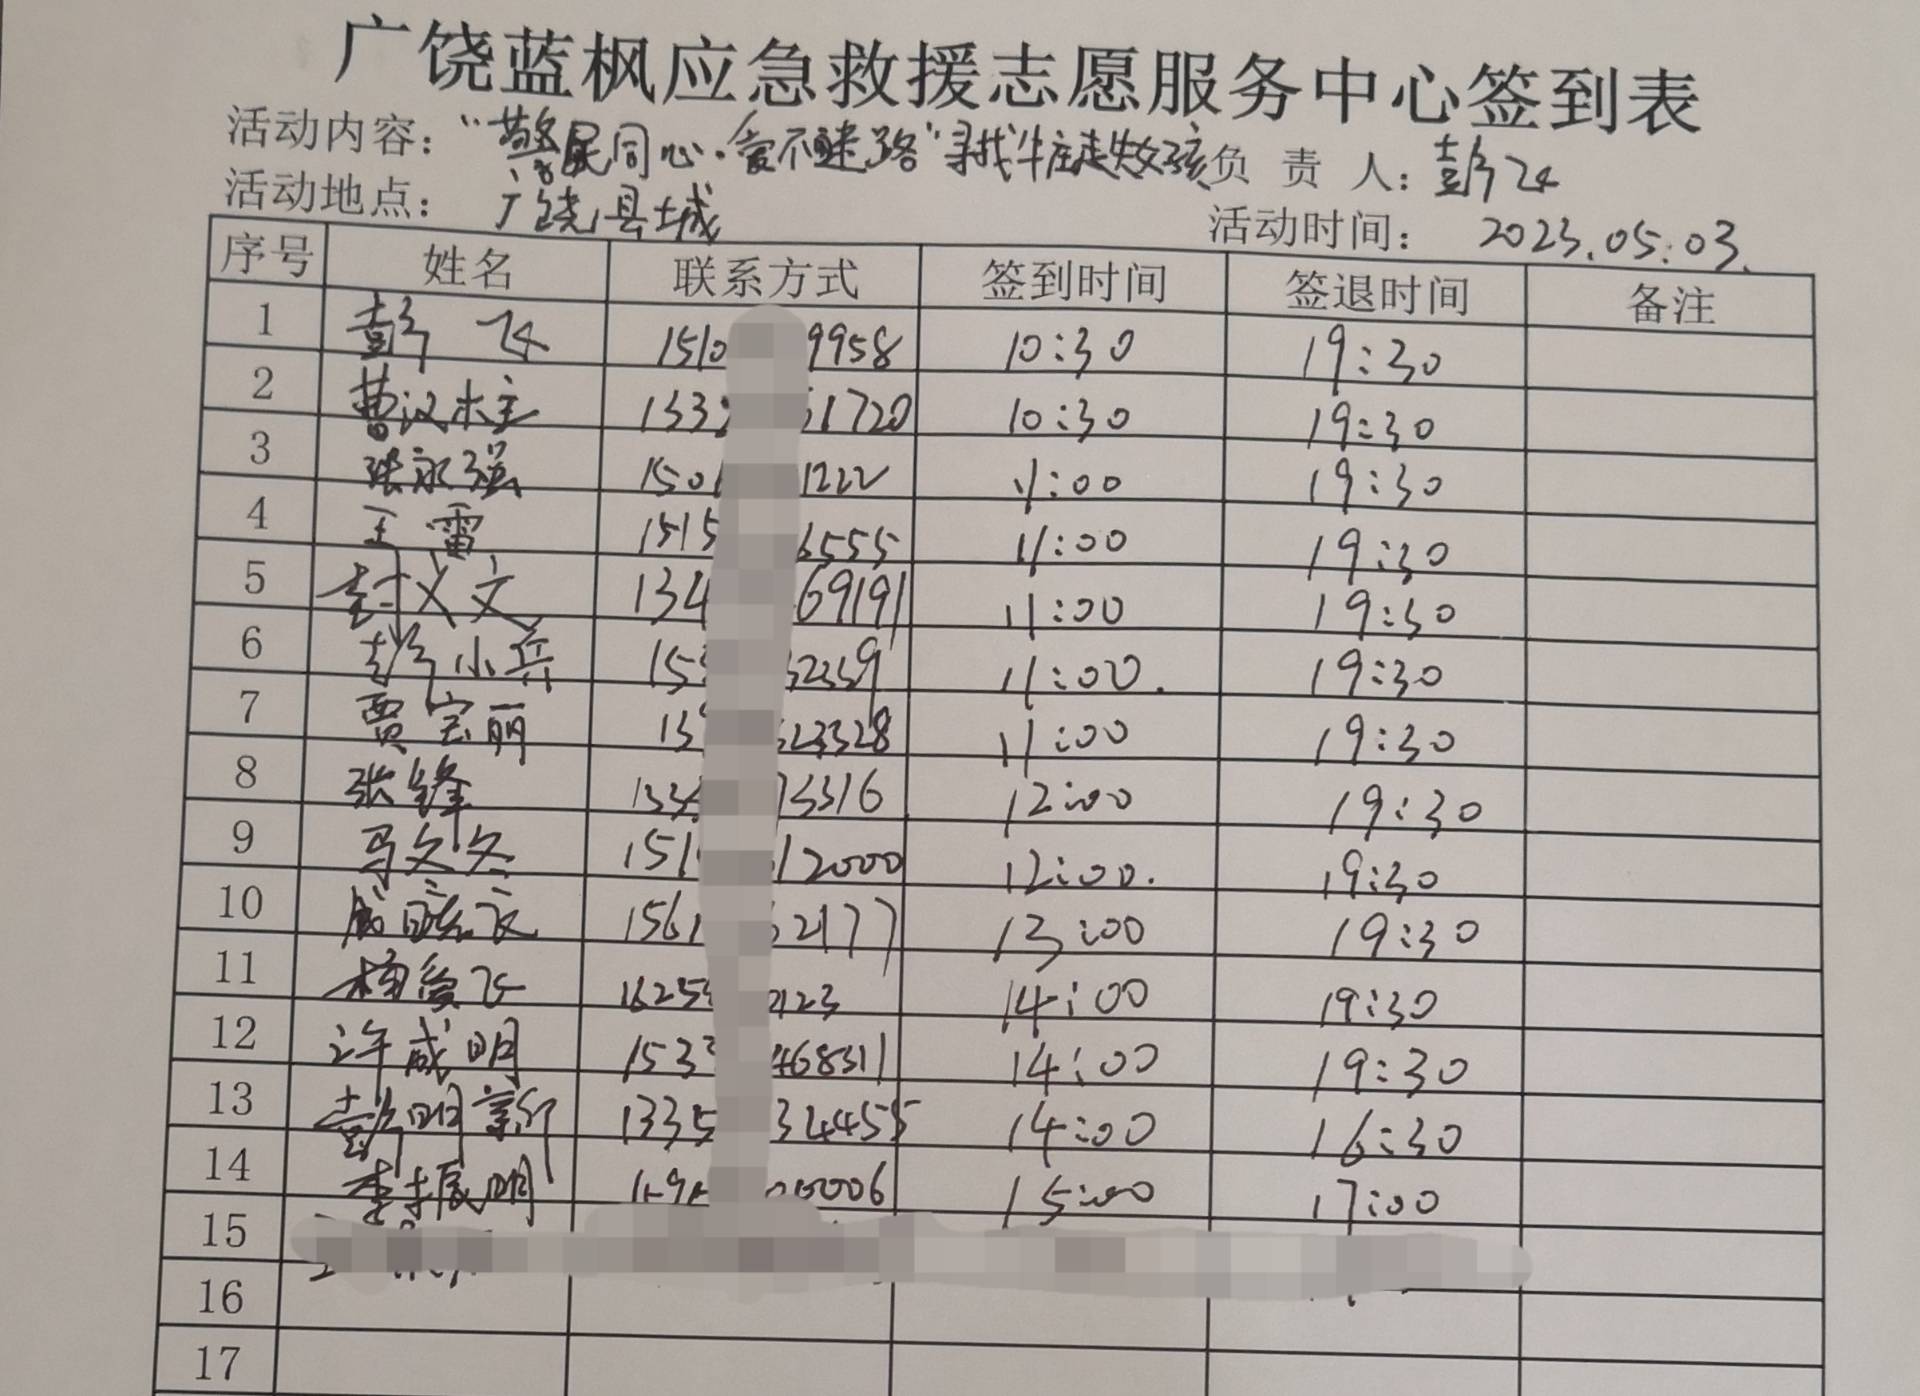 广饶蓝枫应急救援志愿服务中心签到表
活动内容：“警民同心·爱不迷路”寻找牛庄走失女孩 负责人：彭飞
活动地点：广饶县城 活动时间：2023.05.03.
序号 姓名 联系方式 签到时间 签退时间 备注
1 彭飞 1510 9958 10:30 19:30
2 曹汉柱 133 51720 10:30 19:30
3 张永强 150 1222 11:00 19:30
4 王雷 1515 6555 11:00 19:30
5 封义文 134 69191 11:00 19:30
6 彭小兵 15 32339 11:00. 19:30
7 贾宝丽 13 523328 11:00 19:30
8 张锋 133 73316 12:00 19:30
9 马文冬 151 12000 12:00. 19:30
10 1561 2177 13:00 19:30
11 杨爱飞 1625 2123 14:00 19:30
12 许咸明 1533 468311 14:00 19:30
13 彭明新 1335 324455 14:00 16:30
14 李振明 0006 15:00 17:00
15
16
17